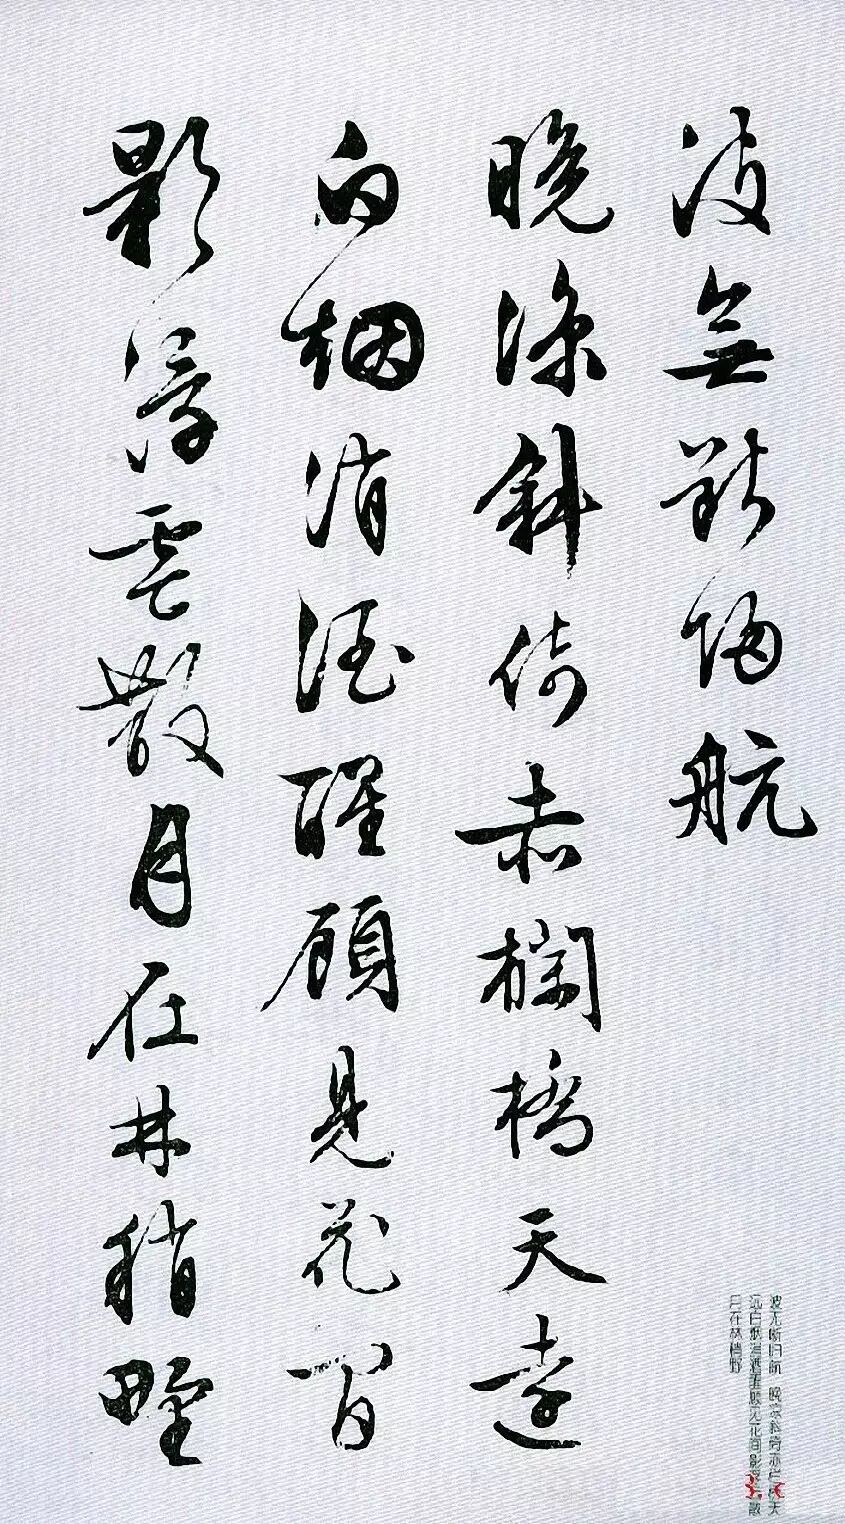 波無斷歸航
晚涼斜倚赤欄橋天遠
白烟消酒醒顧見花間
影浮雲散月在林梢野
波无断归航 晚凉斜倚赤栏桥天
远白烟消酒醒顾见花间影浮云散
月在林梢野